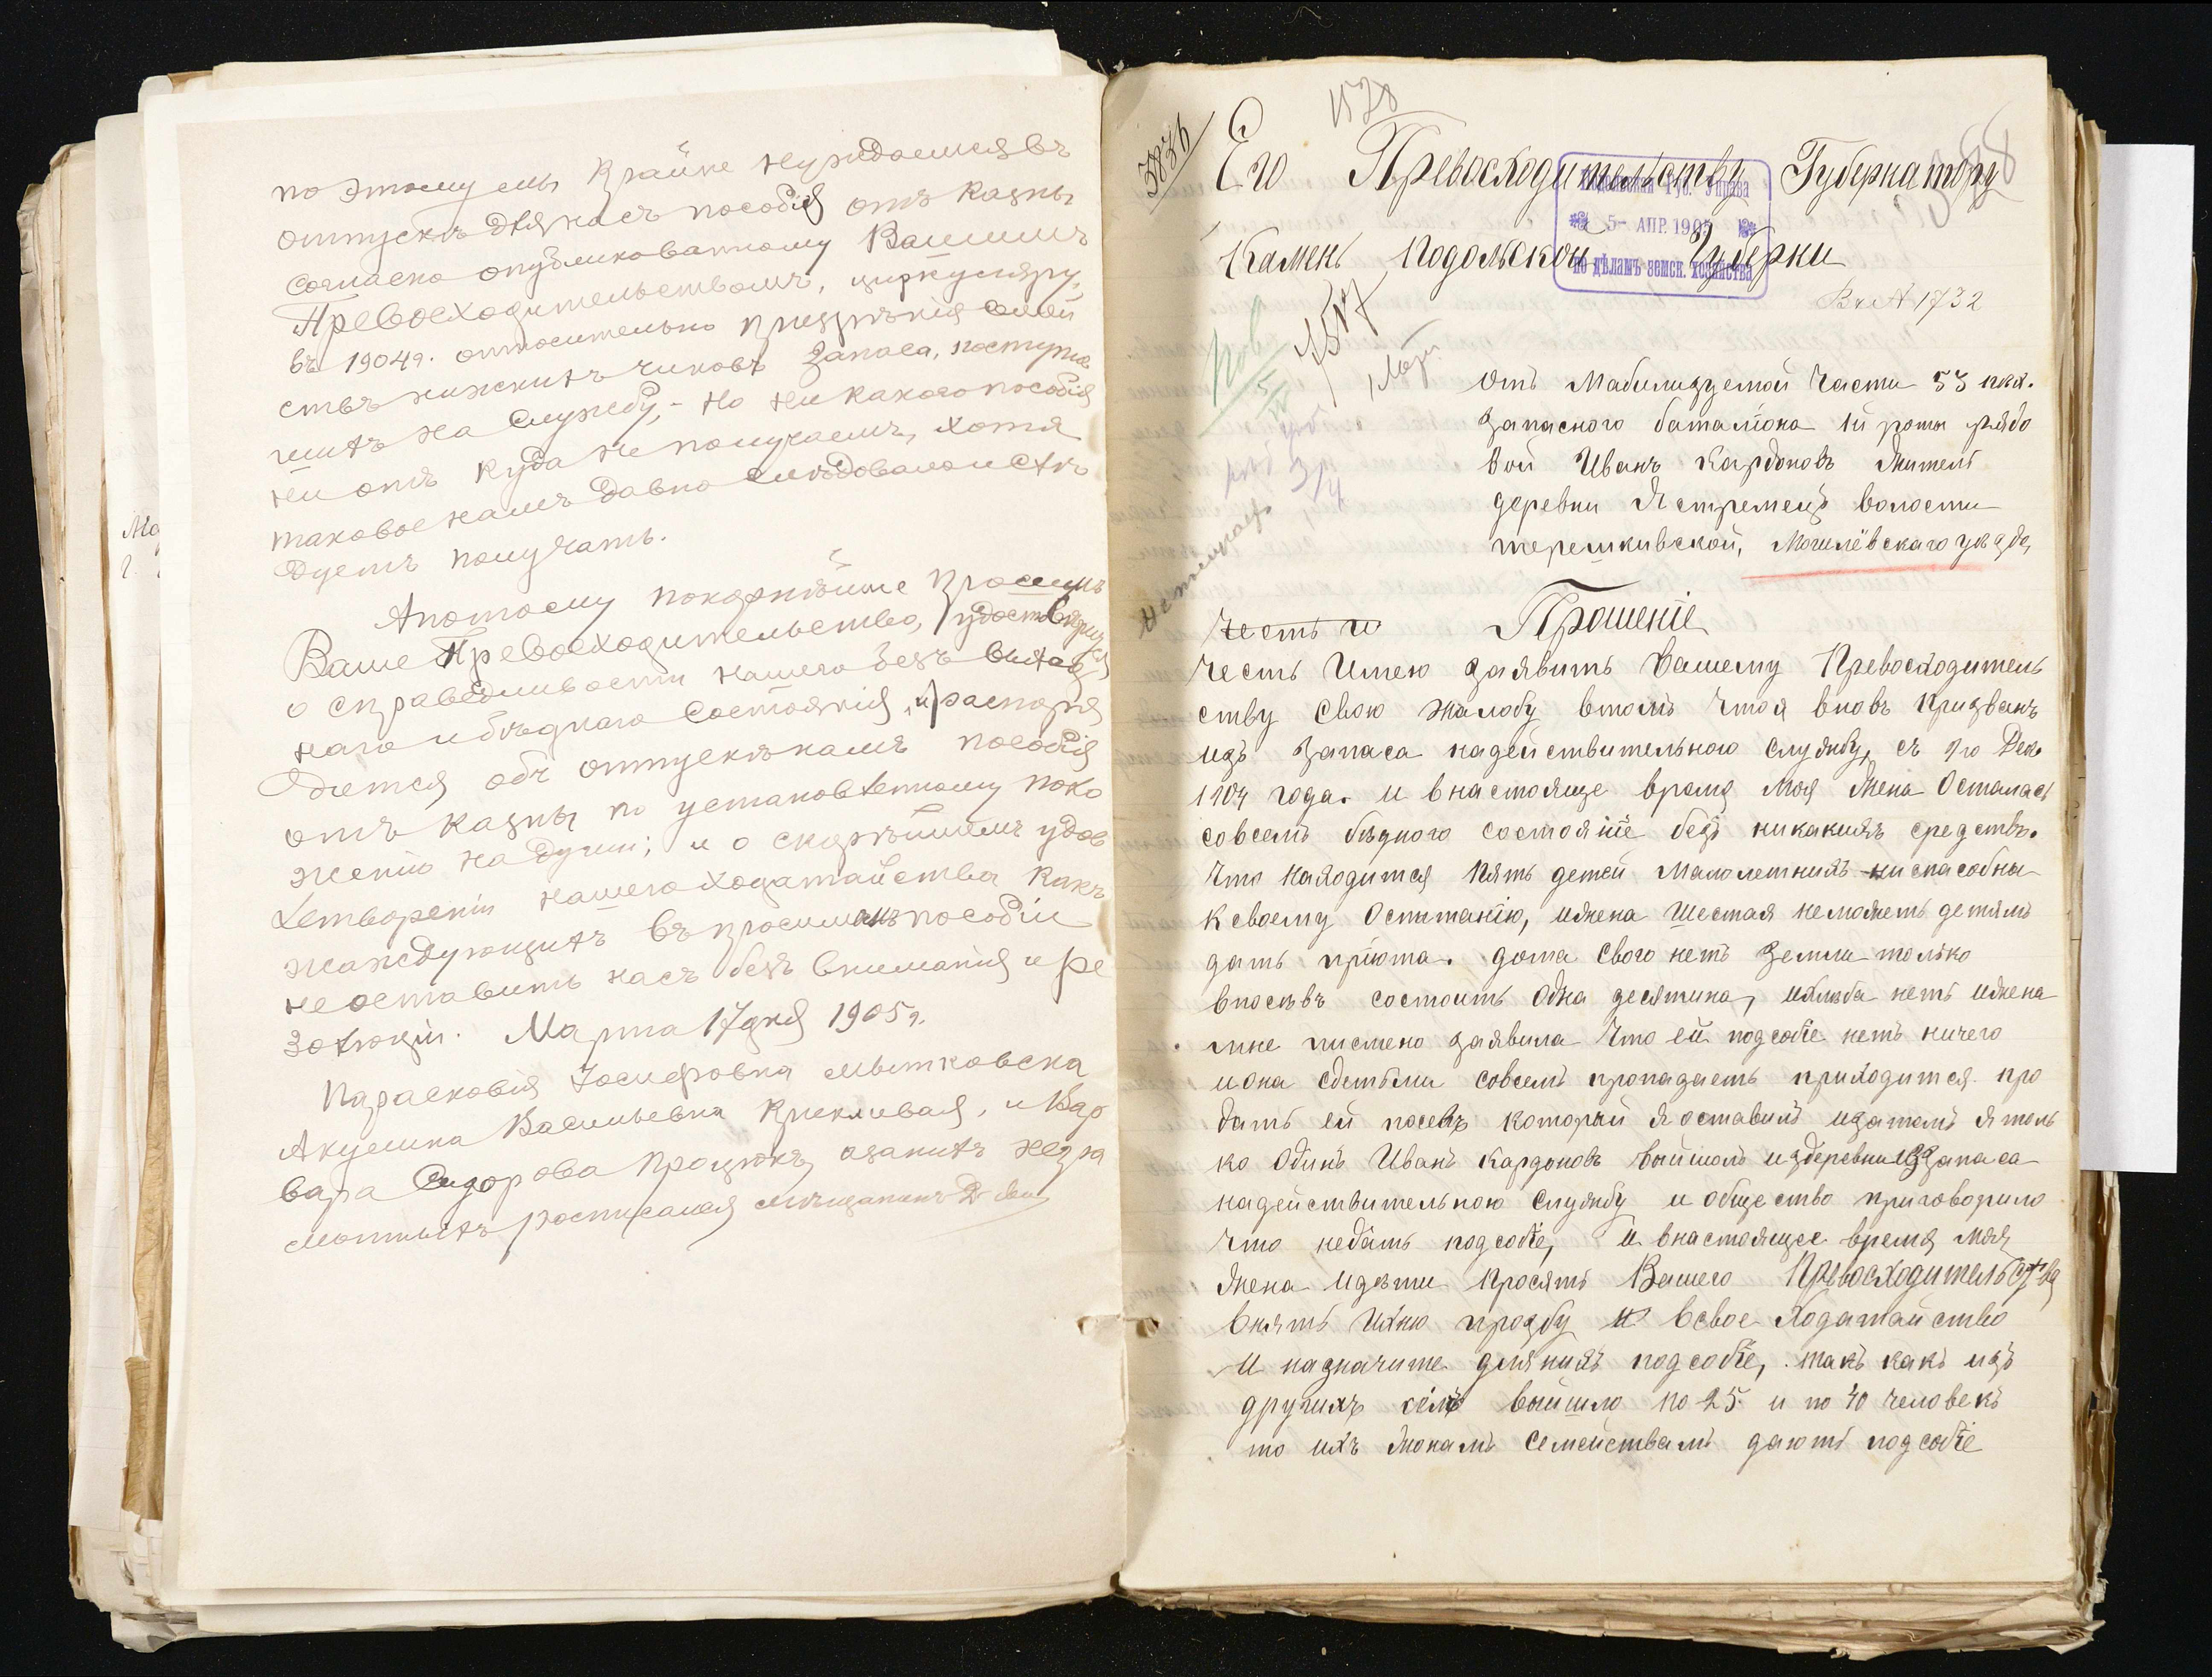 по этому мы крайне нуждаемся въ
отпускѣ для насъ пособія отъ казны
согласно опубликованному Вашимъ
Превосходительствомъ, циркуляру,
въ 1904 г. относительно призрѣнія семей
ствъ нижнихъ чиновъ запаса, поступив
шихъ на службу, - но ни какого пособія
ни отъ куда не получаемъ, хотя
таковое намъ давно слѣдовало и слѣ
дуетъ получать.
А потому покорнѣйше просимъ
Ваше Превосходительство, удостовѣрится
о справедливости нашего безъ выход
наго и бѣднаго состоянія, и распоря
дится объ отпускѣ намъ пособія
отъ казны по установленному поло
женію на души; и о скорѣйшемъ удов
летвореніи нашего ходатайства какъ
жаждующихъ въ просимомъ пособіи
не оставить насъ безъ вниманія и ре
золюціи. Марта 17 дня 1905 г.
Парасковія Іосифовна Мытковска
Акулина Васильевна Крикливая, и Вар
вара Сидорова Процюкъ, а за нихъ негра
мотныхъ росписался мѣщанинъ
3836
1520
Его Превосходительству Губернатору
Камень Подольской Губерни
Губ. Управа
5- АПР. 1905
по дѣламъ земск. хозяйства
Вх А 1732
1517
3/4
отъ Мабилизуемой Части 53 пех.
запасного баталіона 1й роты рядо
вой Иванъ Кардоновъ Житель
деревни Ястремецъ волости
терешкивской, Могилёвскаго уезда,
Честь и Прошеніе
Честь Имею заявить Вашему Превосходитель
ству свою жалобу втомъ Что я вновь Призванъ
изъ Запаса на действительною службу, съ 1го Дек.
1904 года. и внастояще время Моя Жена Осталась
совсемъ бѣдного состояніе безъ никакихъ средствъ.
Что Находится Пять детей Малолетнихъ ниспасобны
к своему Оспитанію, ижена Шестая неможетъ детямъ
дать пріюта. дома свого нетъ Земли только
впосѣвѣ состоитъ Одна десятина, ихлѣба нетъ ижена
мне писмено заявила Что ей подсобіе нетъ ничего
иона сдетьми совсемъ пропадаетъ приходится про
дать ей посевъ который я оставилъ изатемъ я толь
ко Одинъ Иванъ Кардоновъ Выйшолъ издеревни изЗапаса
надействительною службу и общество приговорило
Что недать подсобіе, и внастоящее время моя
Жена идѣти Просятъ Вашего Превосходительства
внять Ихню прозбу и всвое Ходатайство
И назначите для нихъ подсобіе, такъ какъ изъ
другихъ сёлъ выйшло по 25 и по 40 человекъ
то ихъ Жонамъ Семействамъ даютъ подсобіе